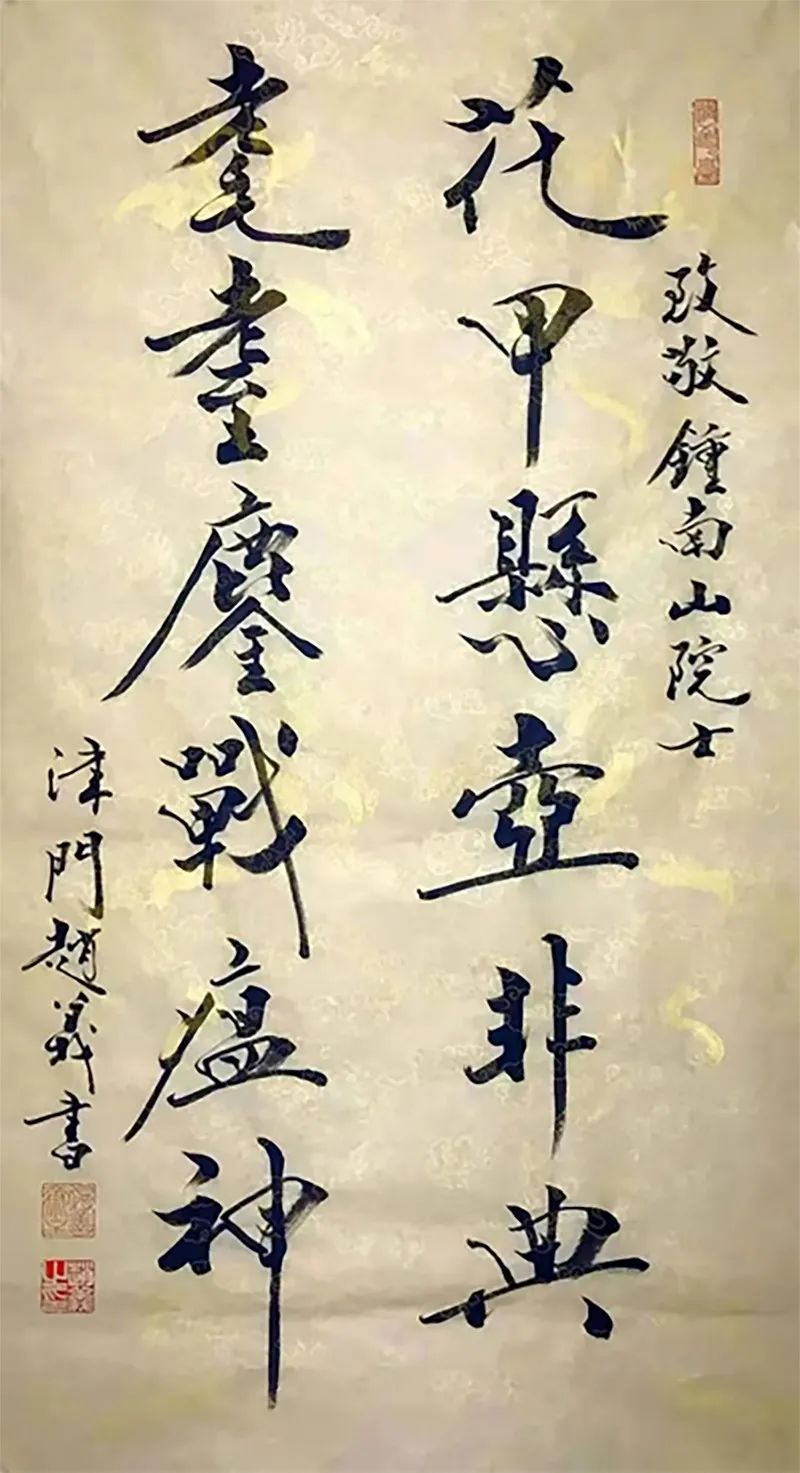 致敬鍾南山院士
花甲懸壺非典
耄耋鏖戰瘟神
津門趙義書